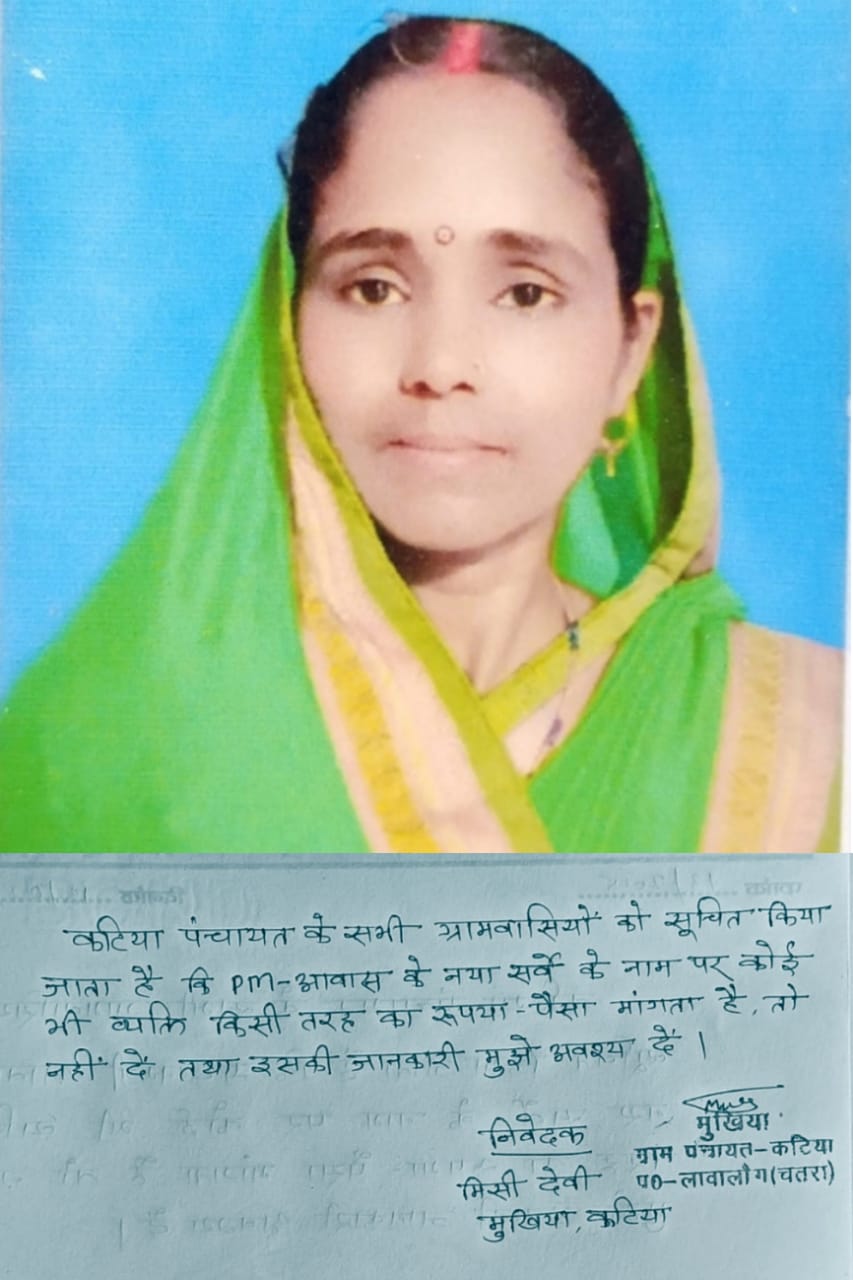 कटिया पंचायत के सभी ग्रामवासियों को सूचित किया
जाता है कि PM-आवास के नया सर्वे के नाम पर कोई
भी व्यक्ति किसी तरह का रूपया-पैसा मांगता है, तो
नहीं दें, तथा इसकी जानकारी मुझे अवश्य दें।
निवेदक
मिसी देवी
मुखिया, कटिया
मुखिया
ग्राम पंचायत-कटिया
प०-लावालौंग(चतरा)